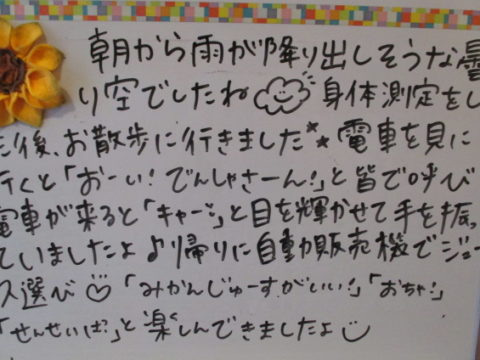 朝から雨が降り出しそうな曇
り空でしたね 身体測定をし
た後、お散歩に行きました 電車を見に
行くと「おーい!でんしゃさーん!」と皆で呼び
電車が来ると「キャー」と目を輝かせて手を振っ
ていましたよ♪帰りに自動販売機でジュー
ス選び♡「みかんじゅーすがいい!」「おちゃ!」
「せんせいは?」と楽しんできましたよ